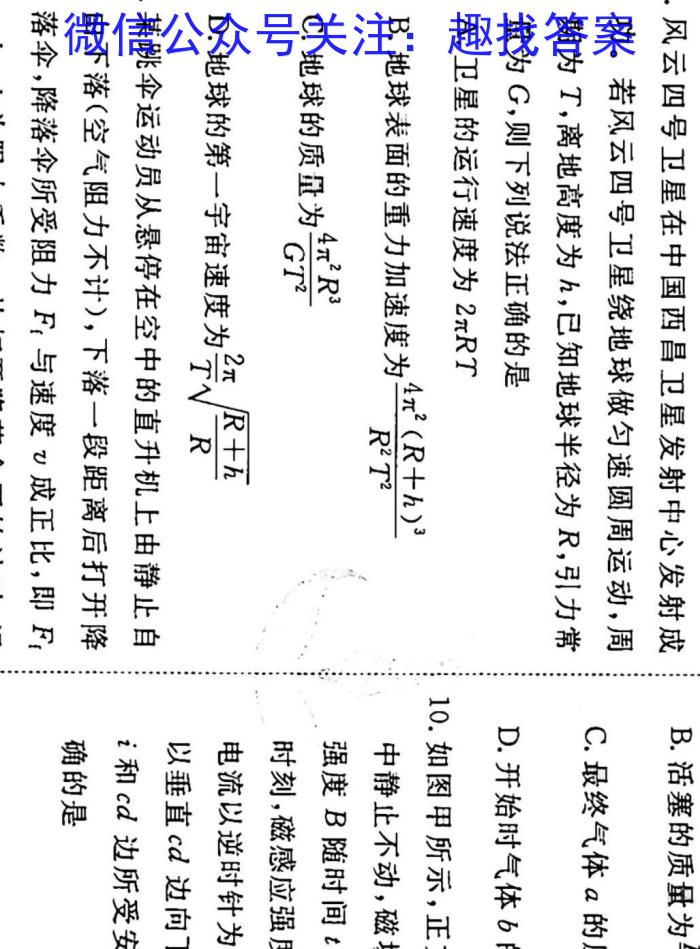 微信公众号关注：趣找答案
. 风云四号卫星在中国西昌卫星发射中心发射成
功. 若风云四号卫星绕地球做匀速圆周运动,周
期为 T,离地高度为 h,已知地球半径为 R,引力常
量为 G,则下列说法正确的是
A. 卫星的运行速度为 2πRT
B. 地球表面的重力加速度为 4π²(R+h)³/R²T²
C. 地球的质量为 4π²R³/GT²
D. 地球的第一宇宙速度为 2π/T √(R+h/R)
. 某跳伞运动员从悬停在空中的直升机上由静止自
由下落(空气阻力不计),下落一段距离后打开降
落伞,降落伞所受阻力 Ff 与速度 v 成正比,即 Ff
B. 活塞的质量为
C. 最终气体 a 的
D. 开始时气体 b 的
10. 如图甲所示,正
中静止不动,磁场
强度 B 随时间 t
时刻,磁感应强度
电流以逆时针为
以垂直 cd 边向下
i 和 cd 边所受安
确的是